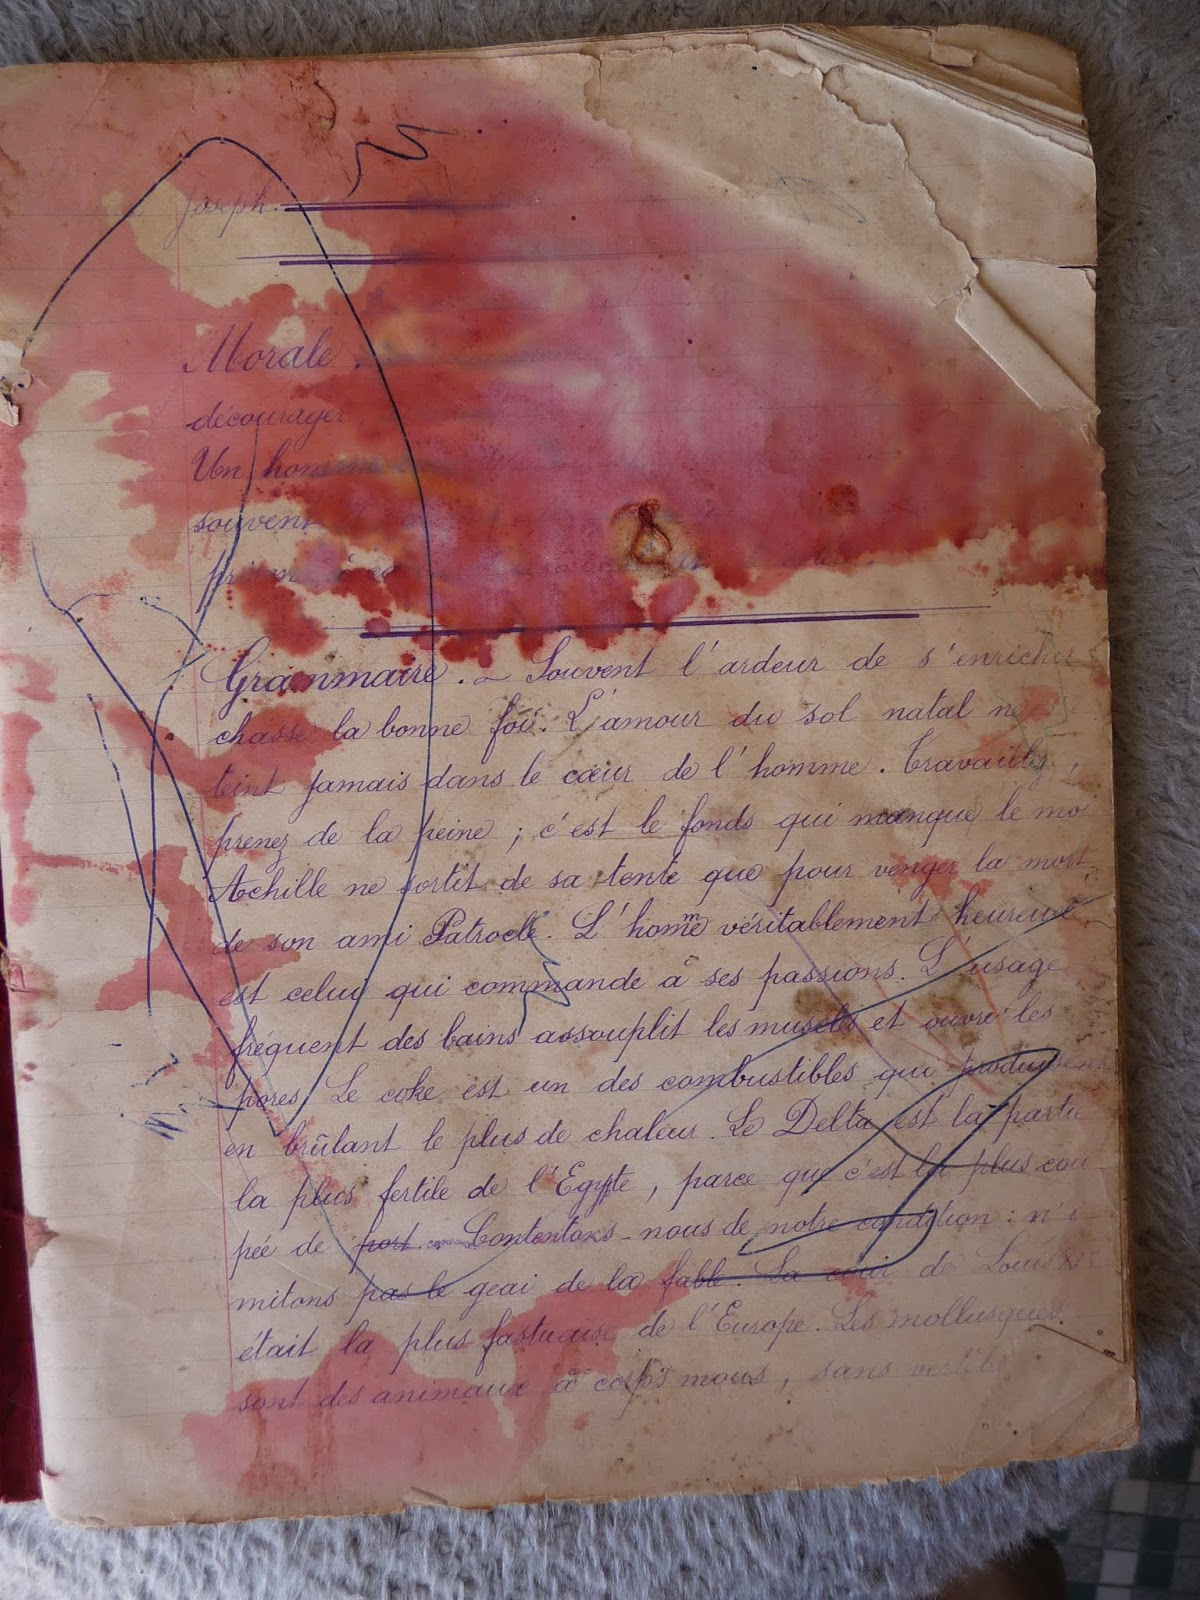 Joseph.
Morale.
décourager
Un homme
souvent
Grammaire. – Souvent l'ardeur de s'enrichir
chasse la bonne foi. L'amour du sol natal ne
teint jamais dans le cœur de l'homme. Travaillez,
prenez de la peine ; c'est le fonds qui manque le moi
Achille ne sortit de sa tente que pour venger la mort
de son ami Patrocle. L'homme véritablement heureux
est celui qui commande à ses passions. L'usage
fréquent des bains assouplit les muscles et ouvre les
pores. Le coke est un des combustibles qui produisent
en brûlant le plus de chaleur. Le Delta est la partie
la plus fertile de l'Egypte, parce que c'est la plus cou-
pée de port. Contentons-nous de notre condition : n'i
mitons pas le geai de la fable. La cour de Louis XI
était la plus fastueuse de l'Europe. Les mollusques
sont des animaux à corps mous, sans vertèbr